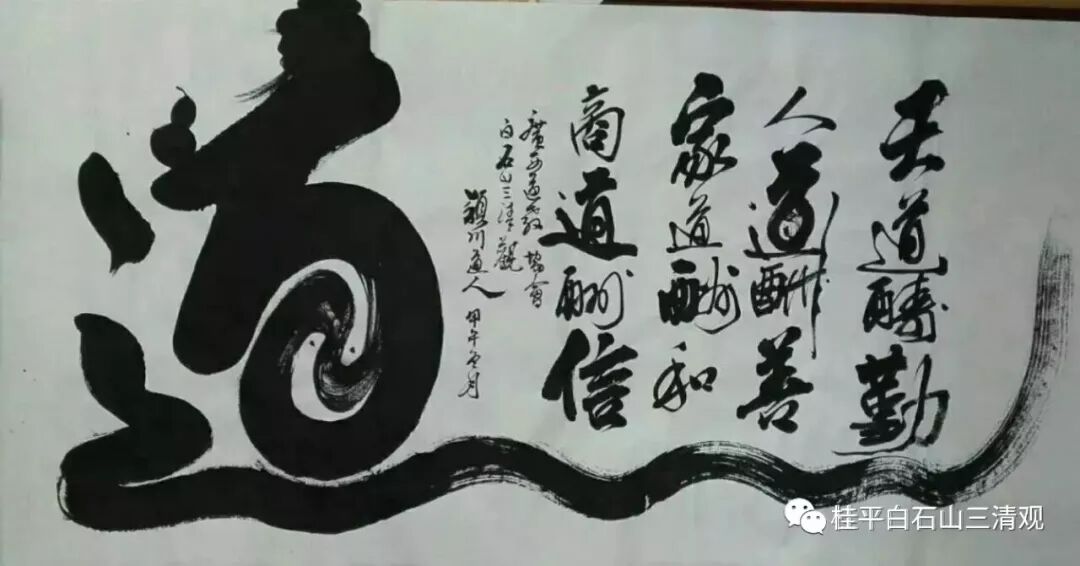 天道酬勤
人道酬善
家道酬和
商道酬信
廣西道教協會
白石山三清觀
潁川道人
甲午冬月
道
桂平白石山三清观